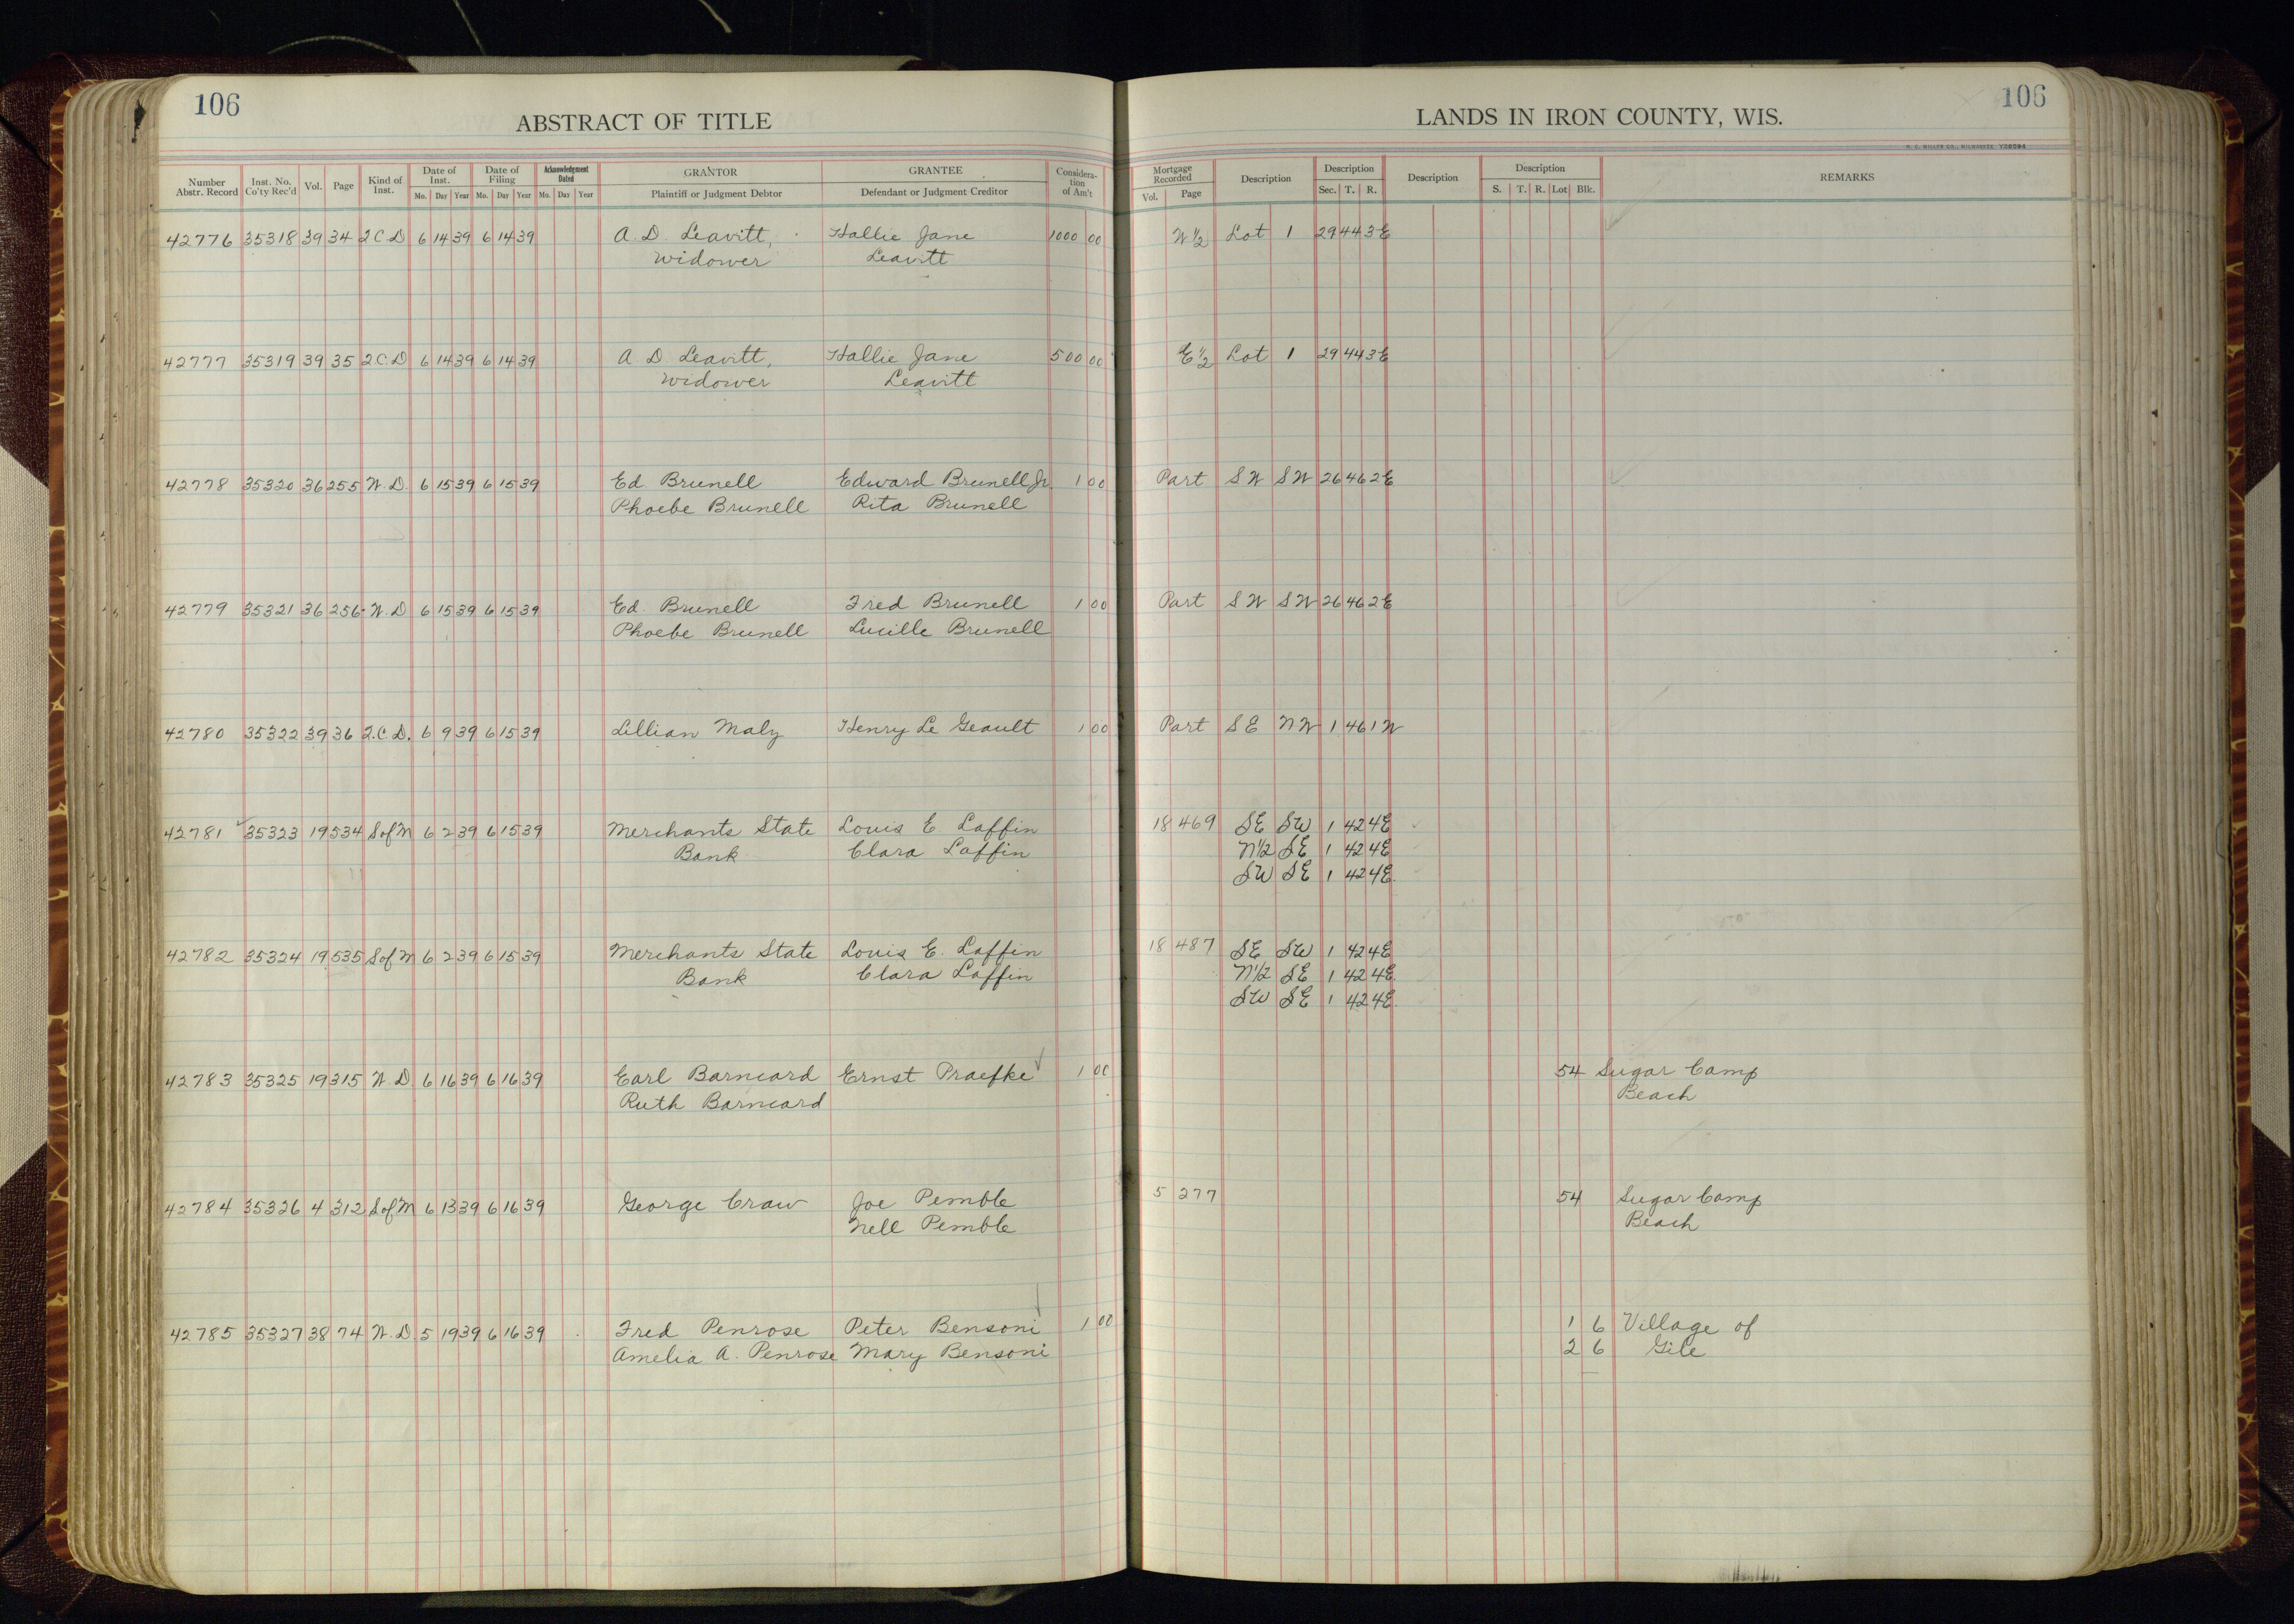 106
ABSTRACT OF TITLE
Number Abstr. Record Inst. No. Co'ty Rec'd Vol. Page Kind of Inst. Date of Inst. Date of Filing Acknowledgment Dated GRANTOR GRANTEE Consideration of Am't
Mo. Day Year Mo. Day Year Mo. Day Year Plaintiff or Judgment Debtor Defendant or Judgment Creditor
42776 35318 39 34 2 C. D 6 14 39 6 14 39 A. D. Leavitt, Hallie Jane 1000 00
widower Leavitt
42777 35319 39 35 2 C. D 6 14 39 6 14 39 A. D. Leavitt, Hallie Jane 500 00
widower Leavitt
42778 35320 36 255 W. D. 6 15 39 6 15 39 Ed. Brunell Edward Brunell Jr. 1 00
Phoebe Brunell Rita Brunell
42779 35321 36 256 W. D 6 15 39 6 15 39 Ed. Brunell Fred Brunell 1 00
Phoebe Brunell Lucille Brunell
42780 35322 39 36 2. C. D. 6 9 39 6 15 39 Lillian Maly Henry Le Geault 1 00
42781 35323 19 534 S of M 6 2 39 6 15 39 Merchants State Louis E Laffin
Bank Clara Laffin
42782 35324 19 535 S of M 6 2 39 6 15 39 Merchants State Louis E. Laffin
Bank Clara Laffin
42783 35325 19 315 W. D. 6 16 39 6 16 39 Earl Barncard Ernst Praefke 1 00
Ruth Barncard
42784 35326 4 312 S of M 6 13 39 6 16 39 George Craw Joe Pemble
Nell Pemble
42785 35327 38 74 W. D. 5 19 39 6 16 39 Fred Penrose Peter Bensoni 1 00
Amelia A. Penrose Mary Bensoni
106
LANDS IN IRON COUNTY, WIS.
H. C. MILLER CO., MILWAUKEE Y28594
Mortgage Recorded Description Description Description Description REMARKS
Vol. Page Sec. T. R. S. T. R. Lot Blk.
W 1/2 Lot 1 29 44 3 E
E 1/2 Lot 1 29 44 3 E
Part S W S W 26 46 2 E
Part S W S W 26 46 2 E
Part S E N W 1 46 1 W
18 469 SE SW 1 42 4E
N 1/2 SE 1 42 4E
SW SE 1 42 4E
18 487 SE SW 1 42 4E
N 1/2 SE 1 42 4E
SW SE 1 42 4E
54 Sugar Camp
Beach
5 277 54 Sugar Camp
Beach
1 6 Village of
2 6 Gile